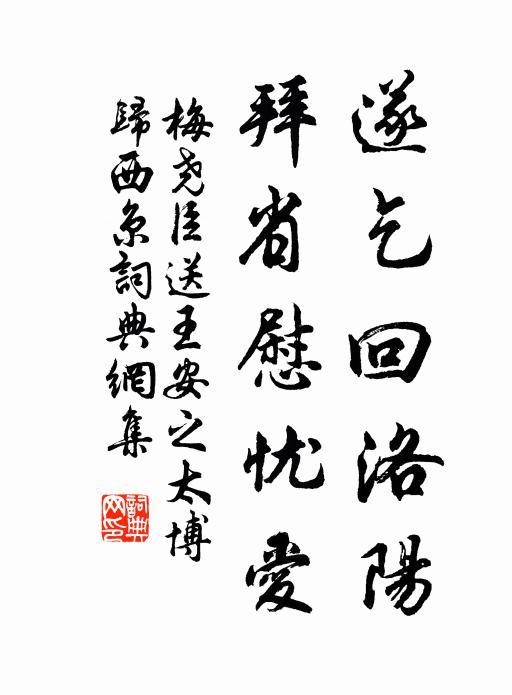 遂乞回洛陽
拜省慰忧愛
梅尧臣送王安之太博
歸西京詞典網集
詞典网印